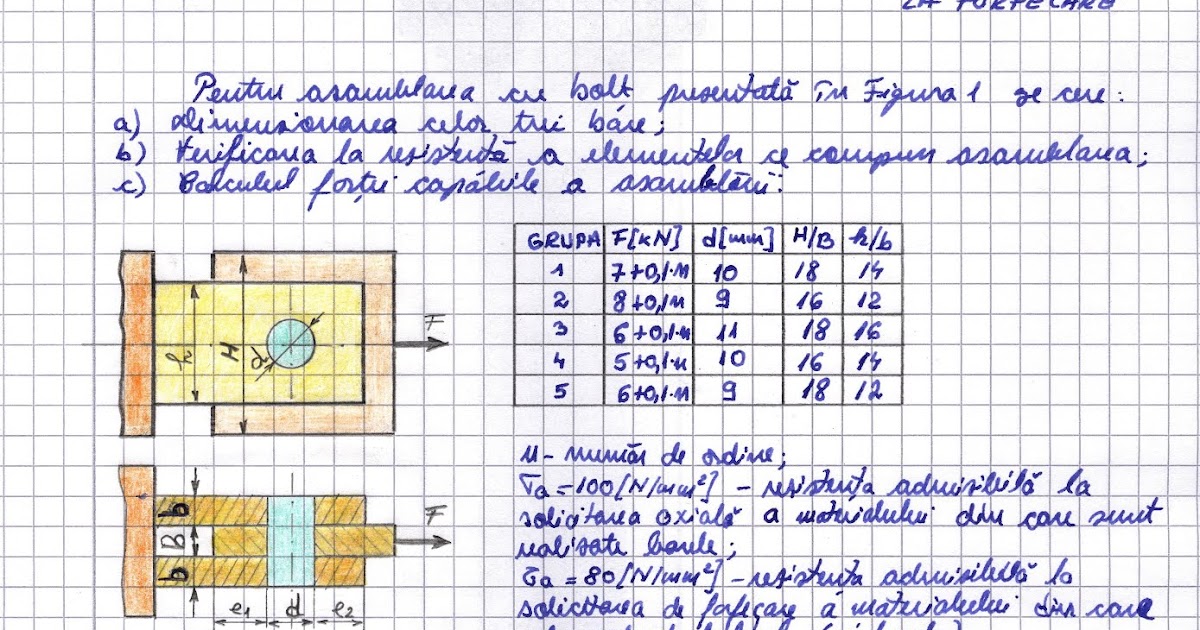 LA FORFECARE
Pentru asamblarea cu bolt prezentată în Figura 1 se cere:
a) Dimensionarea celor trei bare;
b) Verificarea la rezistență a elementelor ce compun asamblarea;
c) Calculul forței capabile a asamblării.
GRUPA F[kN] d[mm] H/B h/b
1 7+0,1·n 10 18 14
2 8+0,1n 9 16 12
3 6+0,1·n 11 18 16
4 5+0,1·n 10 16 14
5 6+0,1·n 9 18 12
h H d F
n - număr de ordine;
σa=100[N/mm²] - rezistența admisibilă la
solicitarea axială a materialului din care sunt
realizate barele;
τa=80[N/mm²] - rezistența admisibilă la
solicitarea de forfecare a materialului din care
b
B F
b
e1 d e2